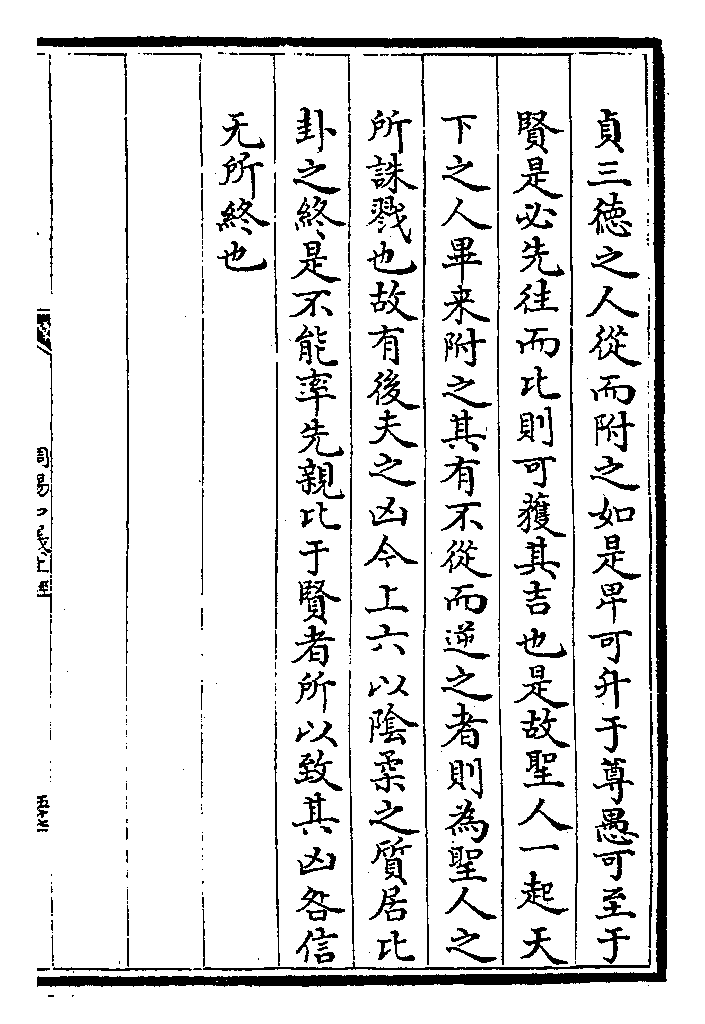 貞三德之人從而附之如是卑可升于尊愚可至于
賢是必先往而比則可獲其吉也是故聖人一起天
下之人畢来附之其有不從而逆之者則為聖人之
所誅戮也故有後夫之凶今上六以陰柔之質居比
卦之終是不能率先親比于賢者所以致其凶咎信
无所終也
周易口義上經